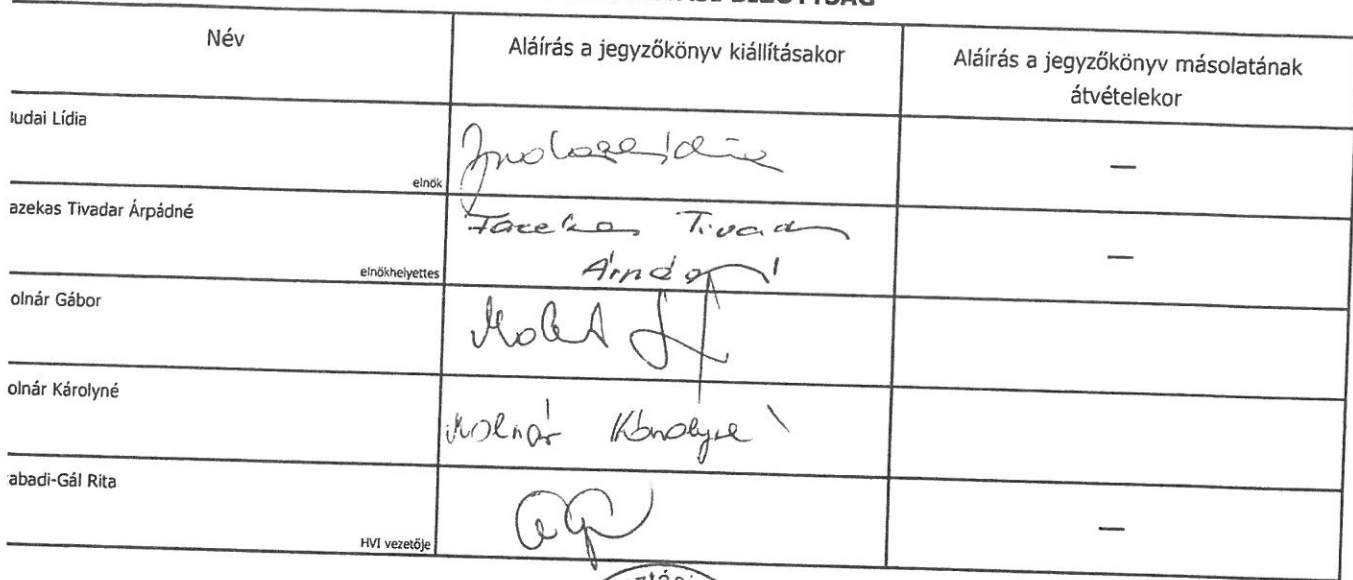 BIZOTTSÁG
Név
Aláírás a jegyzőkönyv kiállításakor
Aláírás a jegyzőkönyv másolatának
átvételekor
udai Lídia
elnök
—
azekas Tivadar Árpádné
elnökhelyettes
Fazekas Tivadar
Árpádné
—
olnár Gábor
olnár Károlyné
Molnár Károlyné
abadi-Gál Rita
HVI vezetője
—